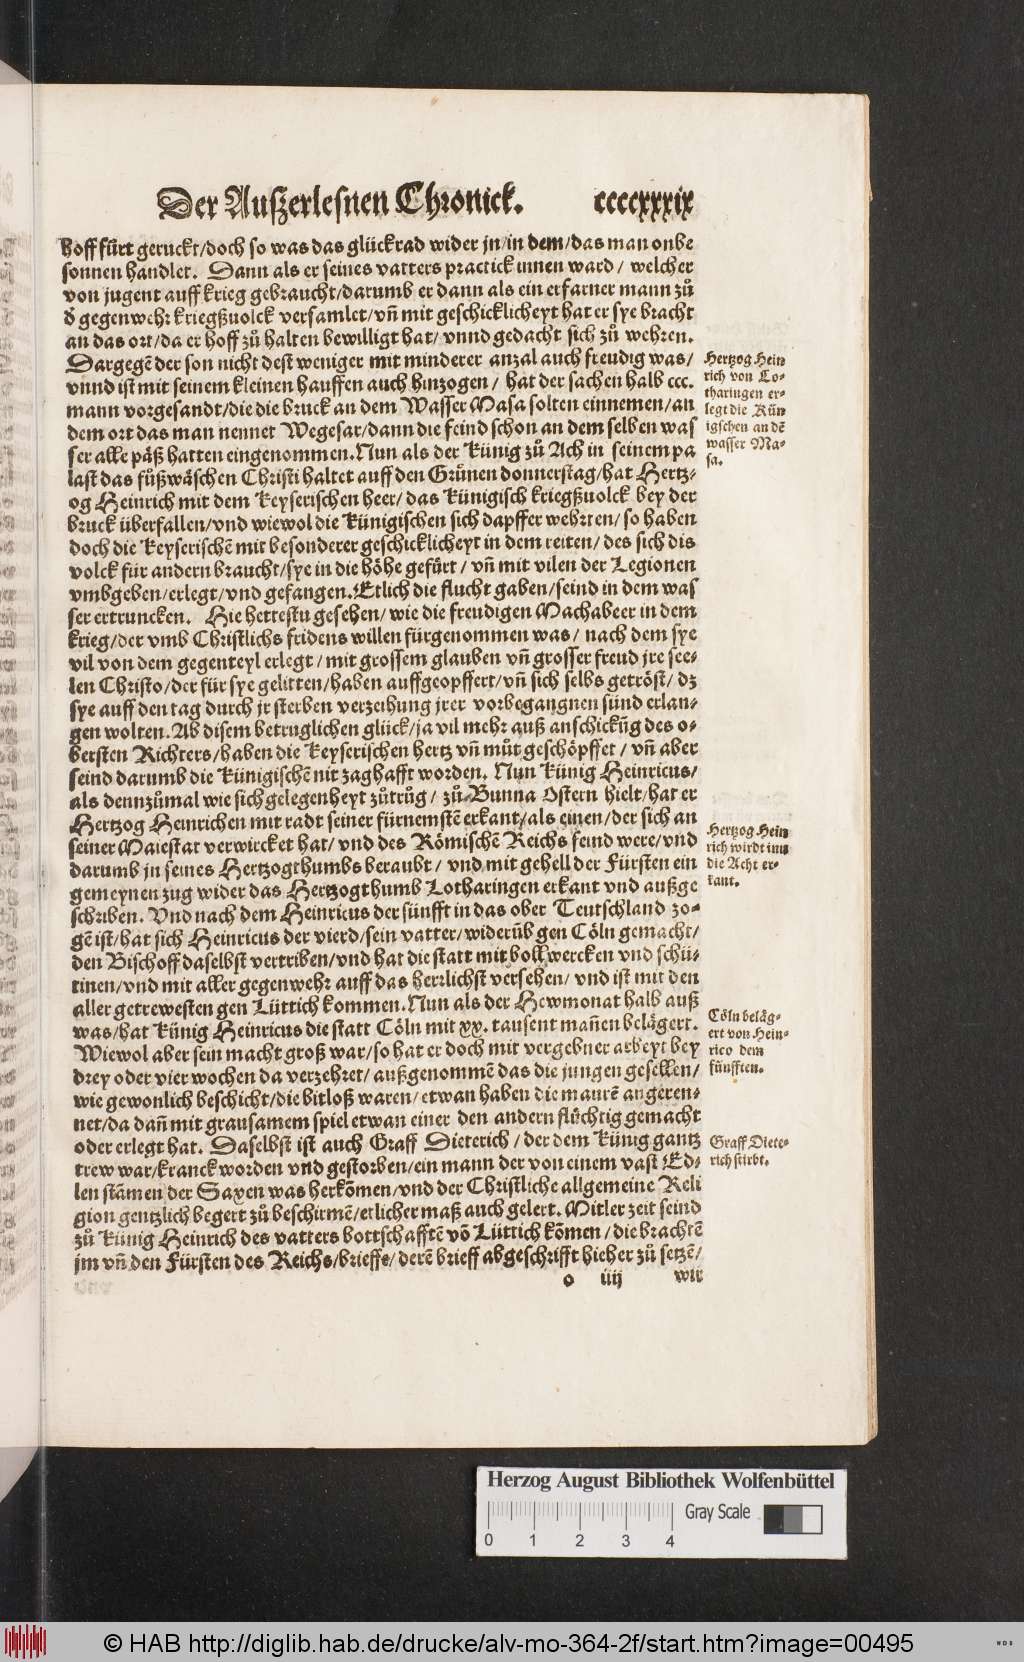 Der Außerlesnen Chronick. ccccxxxix
hoff fürt geruckt/doch so was das glückrad wider jn/in dem/das man onbe
sonnen handlet. Dann als er seines vatters practick innen ward/ welcher
von jugent auff krieg gebraucht/darumb er dann als ein erfarner mann zů
d̕ gegenwehr kriegßuolck versamlet/vñ mit geschicklicheyt hat er sye bracht
an das ort/da er hoff zů halten bewilligt hat/ vnnd gedacht sich zů wehren.
Dargegẽ der son nicht dest weniger mit minderer anzal auch freudig was/
vnnd ist mit seinem kleinen hauffen auch hinzogen/ hat der sachen halb ccc.
mann vorgesandt/die die bruck an dem Wasser Masa solten einnemen/an
dem ort das man nennet Wegesar/dann die feind schon an dem selben was
ser alle päß hatten eingenommen. Nun als der Künig zů Ach in seinem pa
last das fůßwäschen Christi haltet auff den Grůnen donnerstag/hat Hertz-
og Heinrich mit dem Keyserischen heer/das Künigisch kriegßuolck bey der
bruck überfallen/vnd wiewol die Künigischen sich dapffer wehrten/so haben
doch die Keyserischẽ mit besonderer geschicklicheyt in dem reiten/des sich dis
volck für andern braucht/sye in die höhe gefůrt/ vñ mit vilen der Legionen
vmbgeben/erlegt/vnd gefangen. Etlich die flucht gaben/seind in dem was
ser ertruncken. Hie hettestu gesehen/wie die freudigen Machabeer in dem
krieg/der vmb Christlichs fridens willen fürgenommen was/ nach dem sye
vil von dem gegenteyl erlegt/mit grossem glauben vñ grosser freud jre see-
len Christo/der für sye gelitten/haben auffgeopffert/vñ sich selbs getröst/dz
sye auff den tag durch jr sterben verzeihung jrer vorbegangnen sünd erlan-
gen wolten. Ab disem betruglichen glück/ja vil mehr auß anschickũg des o-
bersten Richters/haben die Keyserischen hertz vñ můt geschöpffet/ vñ aber
seind darumb die Künigischẽ nit zaghafft worden. Nun Künig Heinricus/
als dennzůmal wie sich gelegenheyt zůtrůg/ zů Bunna Ostern hielt/hat er
Hertzog Heinrichen mit radt seiner fürnemstẽ erkant/als einen/der sich an
seiner Maiestat verwircket hat/vnd des Römischẽ Reichs feind were/vnd
darumb jn seines Hertzogthumbs beraubt/ vnd mit gehell der Fürsten ein
gemeynen zug wider das Hertzogthumb Lotharingen erkant vnd außge
schriben. Vnd nach dem Heinricus der fünfft in das ober Teutschland zo-
gẽ ist/hat sich Heinricus der vierd/sein vatter/widerũb gen Cöln gemacht/
den Bischoff daselbst vertriben/vnd hat die statt mit bollwercken vnd schü-
tinen/vnd mit aller gegenwehr auff das herrlichst versehen/ vnd ist mit den
aller getrewesten gen Lüttich kommen. Nun als der Hewmonat halb auß
was/hat Künig Heinricus die statt Cöln mit xx. tausent mañen belägert.
Wiewol aber sein macht groß war/so hat er doch mit vergebner arbeyt bey
drey oder vier wochen da verzehret/ außgenommẽ das die jungen gesellen/
wie gewonlich beschicht/die bitloß waren/etwan haben die maurẽ angeren-
net/da dañ mit grausamem spiel etwan einer den andern flüchtig gemacht
oder erlegt hat. Daselbst ist auch Graff Dieterich/der dem Künig gantz
trew war/kranck worden vnd gestorben/ein mann der von einem vast Ed-
len stãmen der Saxen was herkõmen/vnd der Christliche allgemeine Reli
gion gentzlich begert zů beschirmẽ/etlicher maß auch gelert. Mitler zeit seind
zů Künig Heinrich des vatters bottschafftẽ võ Lüttich kõmen/die brachtẽ
jm vñ den Fürsten des Reichs/brieffe/derẽ brieff abgeschrifft hieher zů setzẽ/
o iiij wir
Hertzog Hein
rich von Lo-
tharingen er-
legt die Kün
igschen an dẽ
wasser Ma-
sa.
Hertzog Hein
rich wirdt inn
die Acht er-
kant.
Cöln beläg-
ert von Hein-
rico dem
fünfften.
Graff Diete-
rich stirbt.
Herzog August Bibliothek Wolfenbüttel
0 1 2 3 4
Gray Scale
© HAB http://diglib.hab.de/drucke/alv-mo-364-2f/start.htm?image=00495